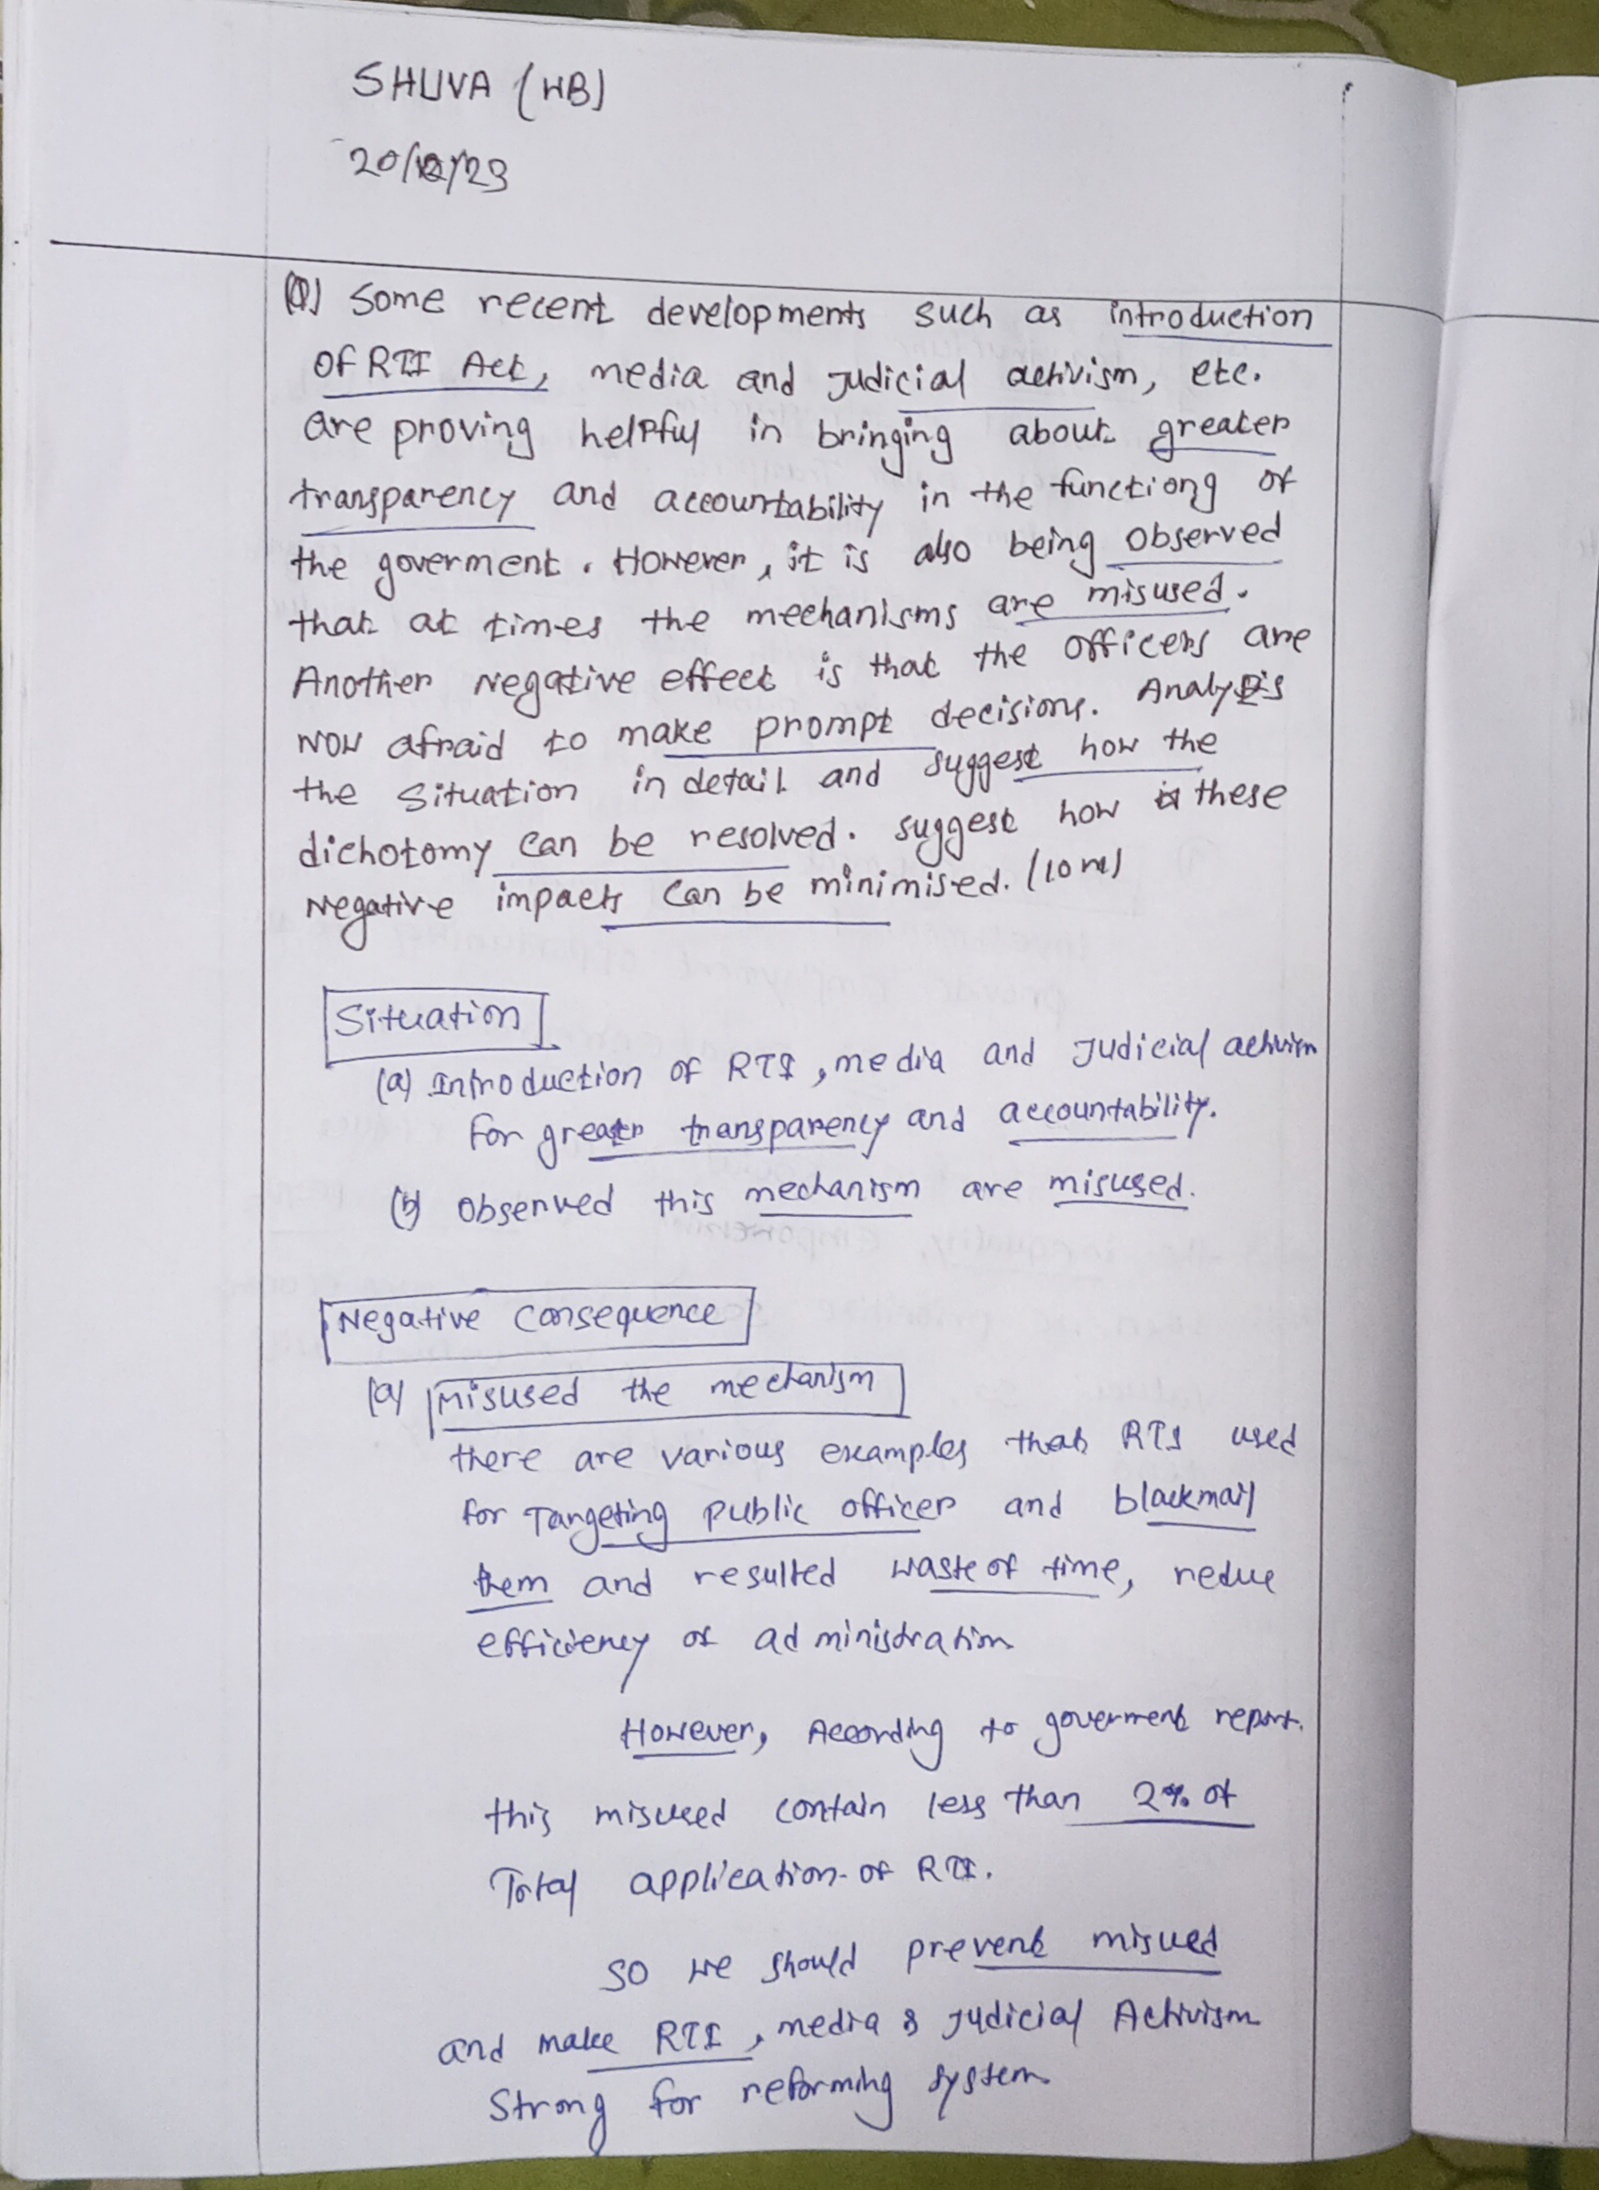 SHUVA (WB)
20/12/23
(Q) Some recent developments such as introduction
of RTI Act, media and Judicial activism, etc.
are proving helpful in bringing about greater
transparency and accountability in the functiong of
the goverment. However, it is also being observed
that at times the mechanisms are misused.
Another Negative effect is that the officers are
NOW afraid to make prompt decisions. Analysis
the situation in detail and suggest how the
dichotomy can be resolved. suggest how these
Negative impacts can be minimised. (10m)
Situation
(a) Introduction of RTI, media and Judicial activism
for greater transparency and accountability.
(b) Observed this mechanism are misused.
Negative Consequence
(a) Misused the mechanism
there are various examples that RTI used
for Targeting public officer and blackmail
them and resulted waste of time, reduce
efficiency of administration
However, According to goverment report.
this misused contain less than 2% of
Total application of RTI.
SO we should prevent misued
and make RTI, media & Judicial Activism
Strong for reforming system